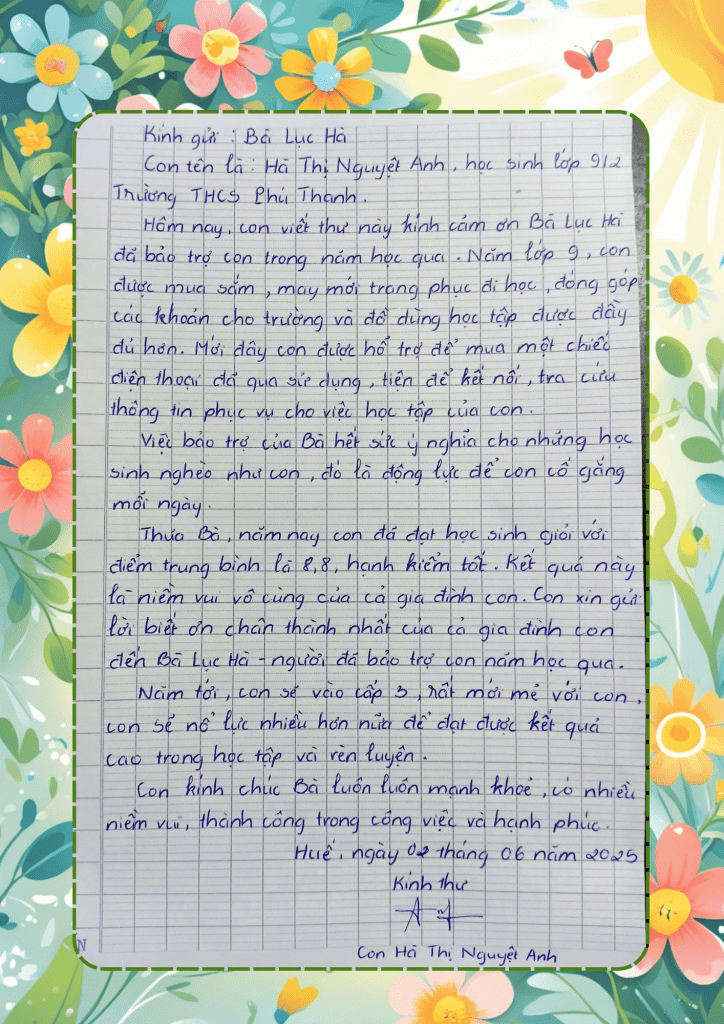 Kính gửi : Bà Lục Hà
Con tên là : Hà Thị Nguyệt Anh, học sinh lớp 9/2
Trường THCS Phú Thanh.
Hôm nay, con viết thư này kính cảm ơn Bà Lục Hà
đã bảo trợ con trong năm học qua. Năm lớp 9, con
được mua sắm, may mới trang phục đi học, đóng góp
các khoản cho trường và đồ dùng học tập được đầy
đủ hơn. Mới đây con được hỗ trợ để mua một chiếc
điện thoại đã qua sử dụng, tiện để kết nối, tra cứu
thông tin phục vụ cho việc học tập của con.
Việc bảo trợ của Bà hết sức ý nghĩa cho những học
sinh nghèo như con, đó là động lực để con cố gắng
mỗi ngày.
Thưa Bà, năm nay con đã đạt học sinh giỏi với
điểm trung bình là 8,8, hạnh kiểm tốt. Kết quả này
là niềm vui vô cùng của cả gia đình con. Con xin gửi
lời biết ơn chân thành nhất của cả gia đình con
đến Bà Lục Hà - người đã bảo trợ con năm học qua.
Năm tới, con sẽ vào cấp 3, rất mới mẻ với con,
con sẽ nổ lực nhiều hơn nữa để đạt được kết quả
cao trong học tập và rèn luyện.
Con kính chúc Bà luôn luôn mạnh khoẻ, có nhiều
niềm vui, thành công trong công việc và hạnh phúc.
Huế, ngày 02 tháng 06 năm 2025
Kính thư
Con Hà Thị Nguyệt Anh